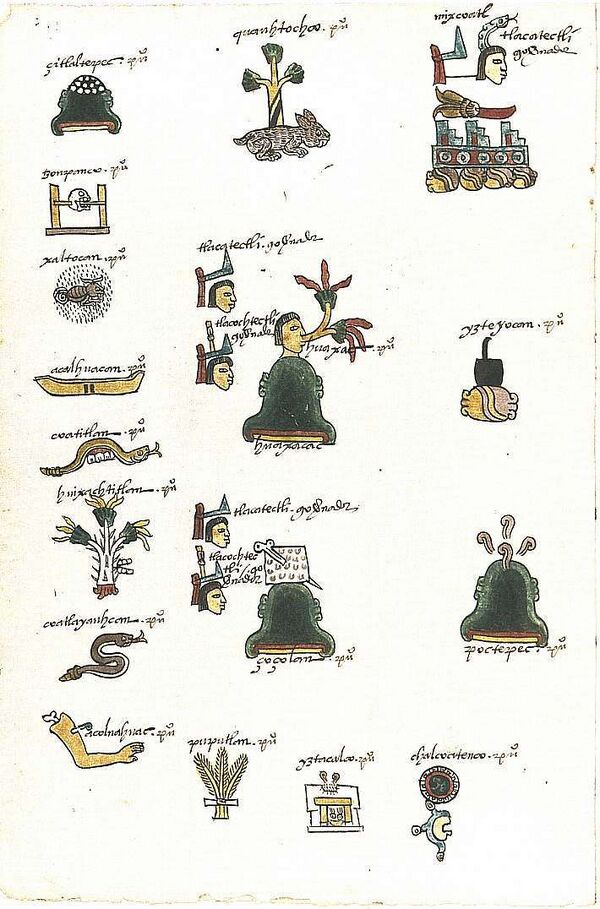 çitlaltepec. puo
quauhtochco. puo
mixcoatl
tlacatectli
gouernador
tzonpanco. puo
xaltocan. puo
tlacatectli. gouernador
tlacochtectli
gouernador
huaxac. puo
huaxacac
yzteyocan. puo
acalhuacan. puo
coatitlan. puo
huixachtitlan. puo
tlacatectli. gouernador
tlacochtec
tli. go
uernador
coatlayauhcan. puo
çoçolan. puo
poctepec. puo
acolnahuac. puo
puputlan. puo
yztacalco. puo
chalcoatenco. puo